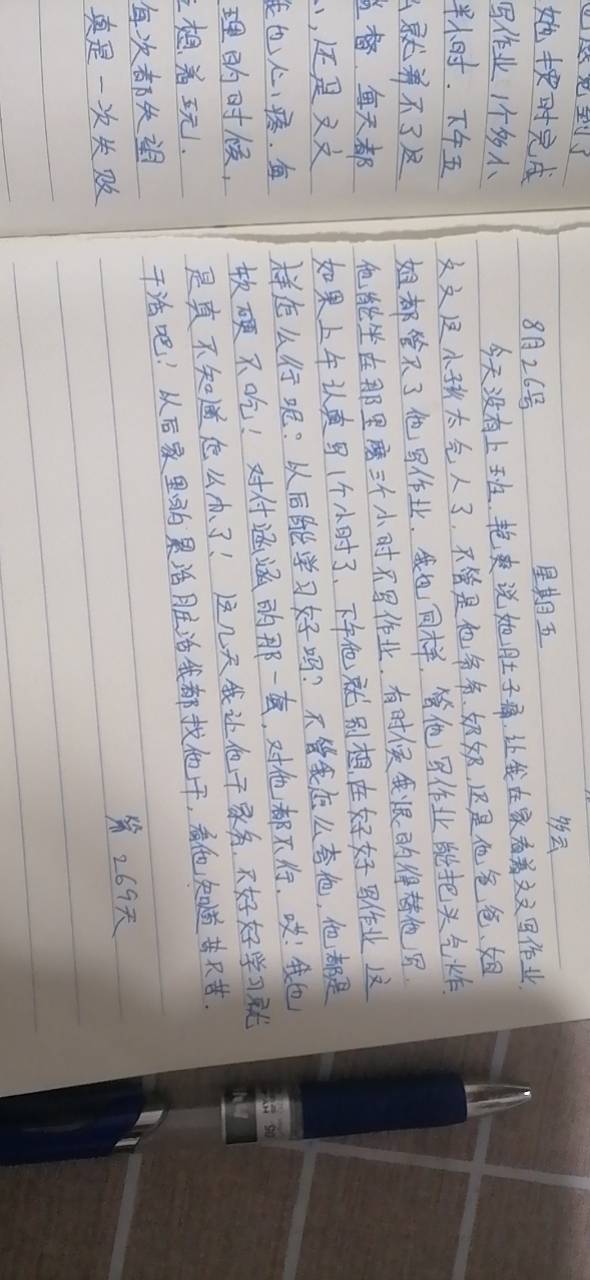 到了
她按时完成
写作业1个多小
半小时．下午五
就看不了这
每天都
还是文文
我也心疼．每
理的时候，
想着玩！
每次都失望
真是一次失败
8月26号 星期五 多云
今天没有上班，艳爽说她肚子痛，让我在家看着文文写作业．
文文这小孩太气人了，不管是他爷爷．奶奶，还是他爸爸、姐
姐都管不了他写作业．我也同样，管他写作业能把头气炸．
他能坐在那里磨三个小时不写作业．有时候我恨的俾替他写．
如果上午认真写1个小时了，下午他就别想在好好写作业，这
样怎么行呢？以后能学习好吗？不管我怎么查他，他都是
软硬不吃！对付涵涵的那一套，对他都不行．哎！我也
是真不知道怎么办了！这几天我让他干家务，不好好学习就
干活吧！以后家里的累活脏活我都找他干，看他知道苦不苦．
第269天